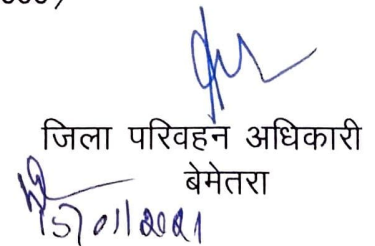 जिला परिवहन अधिकारी
बेमेतरा
15/01/2021